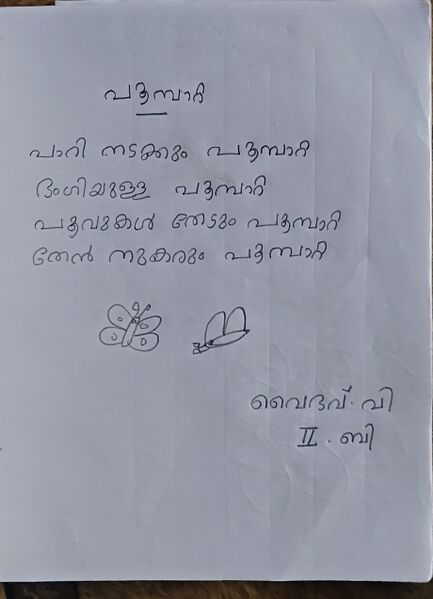 പൂമ്പാറ്റ
പാറി നടക്കും പൂമ്പാറ്റ
ഭംഗിയുള്ള പൂമ്പാറ്റ
പൂവുകൾ തേടും പൂമ്പാറ്റ
തേൻ നുകരും പൂമ്പാറ്റ
വൈഭവ്. വി
II. ബി